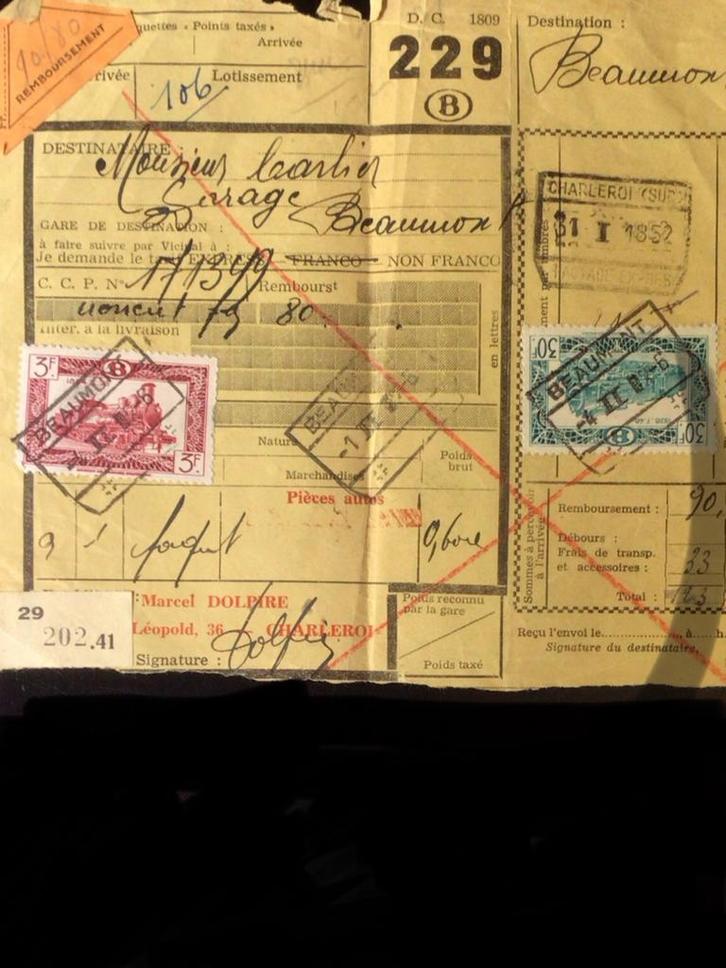 uettes « Points taxés »
Arrivée
D. C. 1809
Destination :
Beaumon
90/80
REMBOURSEMENT
rivée
106
Lotissement
229
B
DESTINATAIRE :
Monsieur Carlier
Garage
GARE DE DESTINATION :
Beaumont
à faire suivre par Vicinal à :
Je demande le tarif EXPRESS FRANCO NON FRANCO
C. C. P. N° 171399
Rembourst
80
Inter. à la livraison
en lettres
CHARLEROI (SUD)
31 I 1952
3F.
B
3F.
BEAUMONT
BEAU
-1 II
30F.
B
30F.
BEAUMONT
-4 II
Nature
Marchandises
Poids
brut
Pièces autos
1
paquet
Marcel DOLPIRE
Léopold, 36 - CHARLEROI
Signature :
29
202.41
Poids reconnu
par la gare
Poids taxé
Sommes à percevoir
à l'arrivée
Remboursement : 90,
Débours :
Frais de transp.
et accessoires : 33
Total :
Reçu l'envoi le............ à......h.
Signature du destinataire,